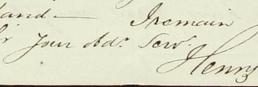 and — I remain
Your Obdt. Serv.
Henry